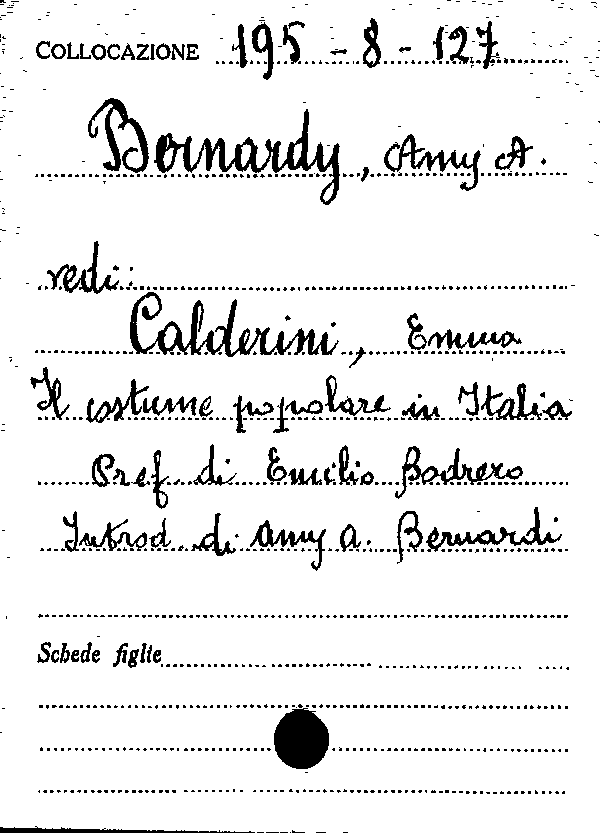 COLLOCAZIONE 195-8-127
Bernardy, Amy A.
vedi:
Calderini, Emma
Il costume popolare in Italia
Pref di Emilio Bodrero
Introd. di Amy A. Bernardi
Schede figlie